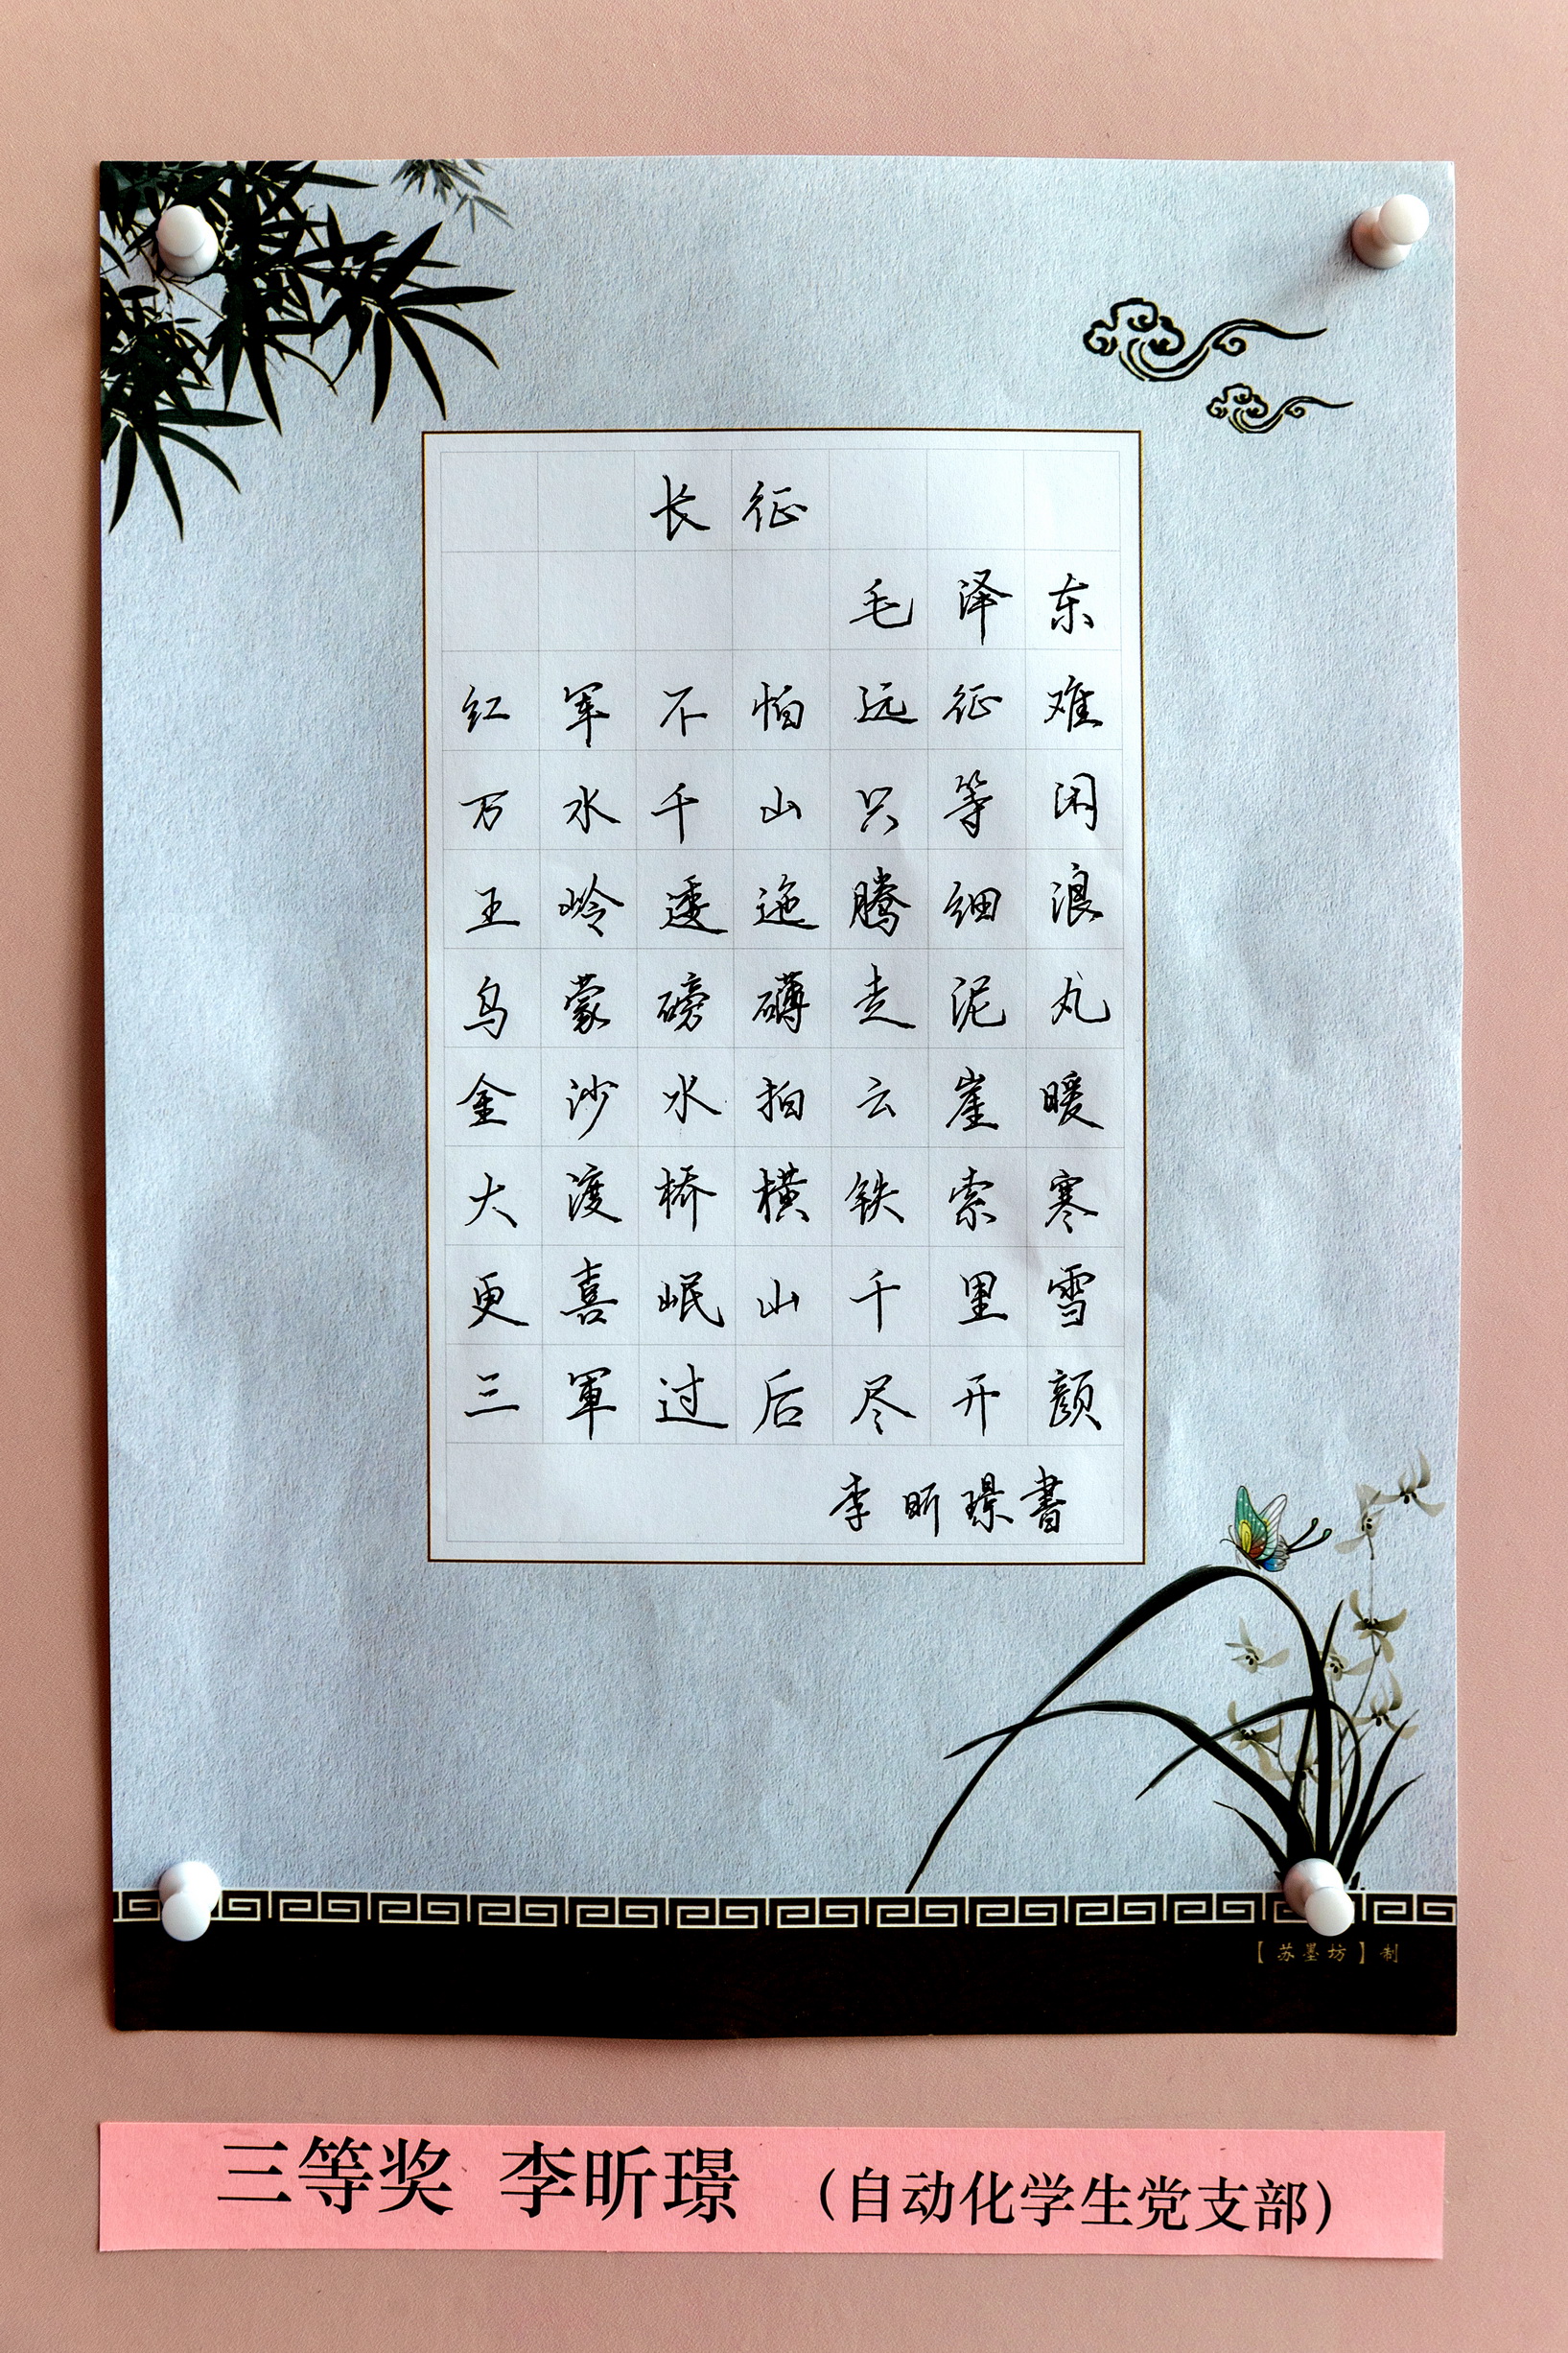 长征
毛泽东
红军不怕远征难
万水千山只等闲
王岭逶迤腾细浪
乌蒙磅礴走泥丸
金沙水拍云崖暖
大渡桥横铁索寒
更喜岷山千里雪
三軍过后尽开颜
李昕璟書
【苏墨坊】制
三等奖 李昕璟 （自动化学生党支部）